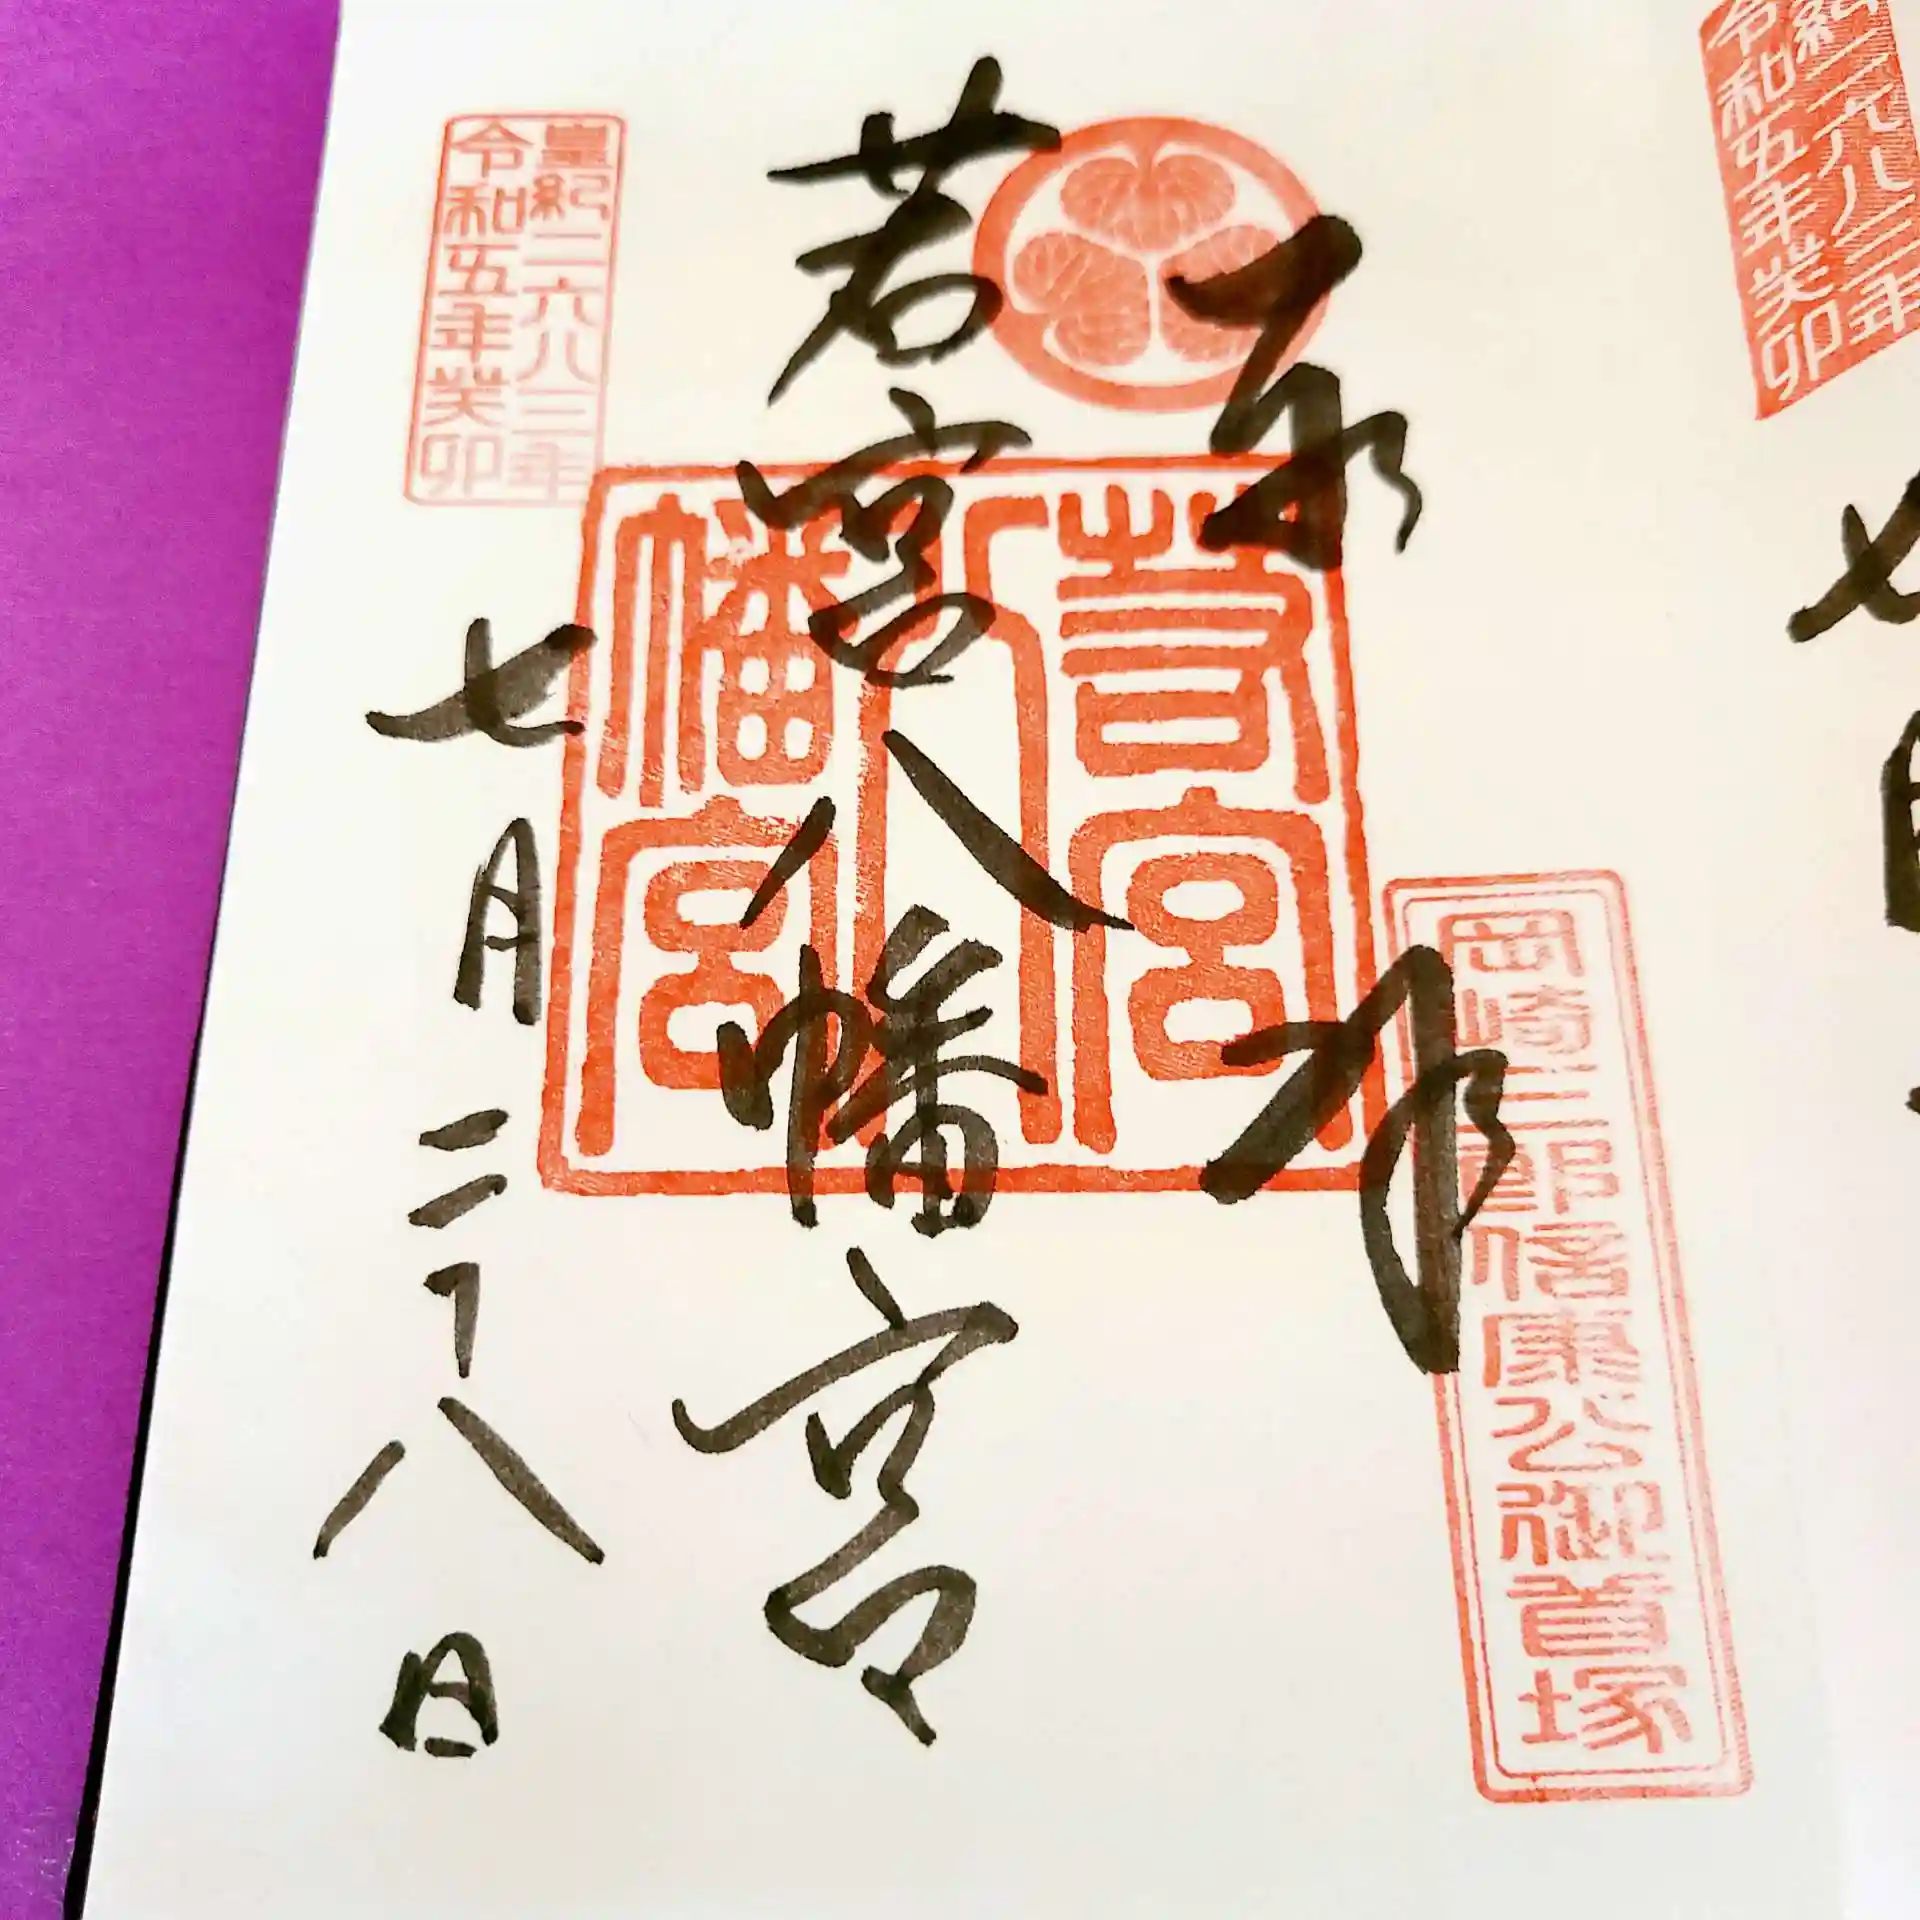 奉拝
岡崎三郎信康公御首塚
若宮八幡宮
若宮八幡宮
皇紀二六八三年
令和五年癸卯
七月二十八日
紀二六八三年
令和五年癸卯
七月